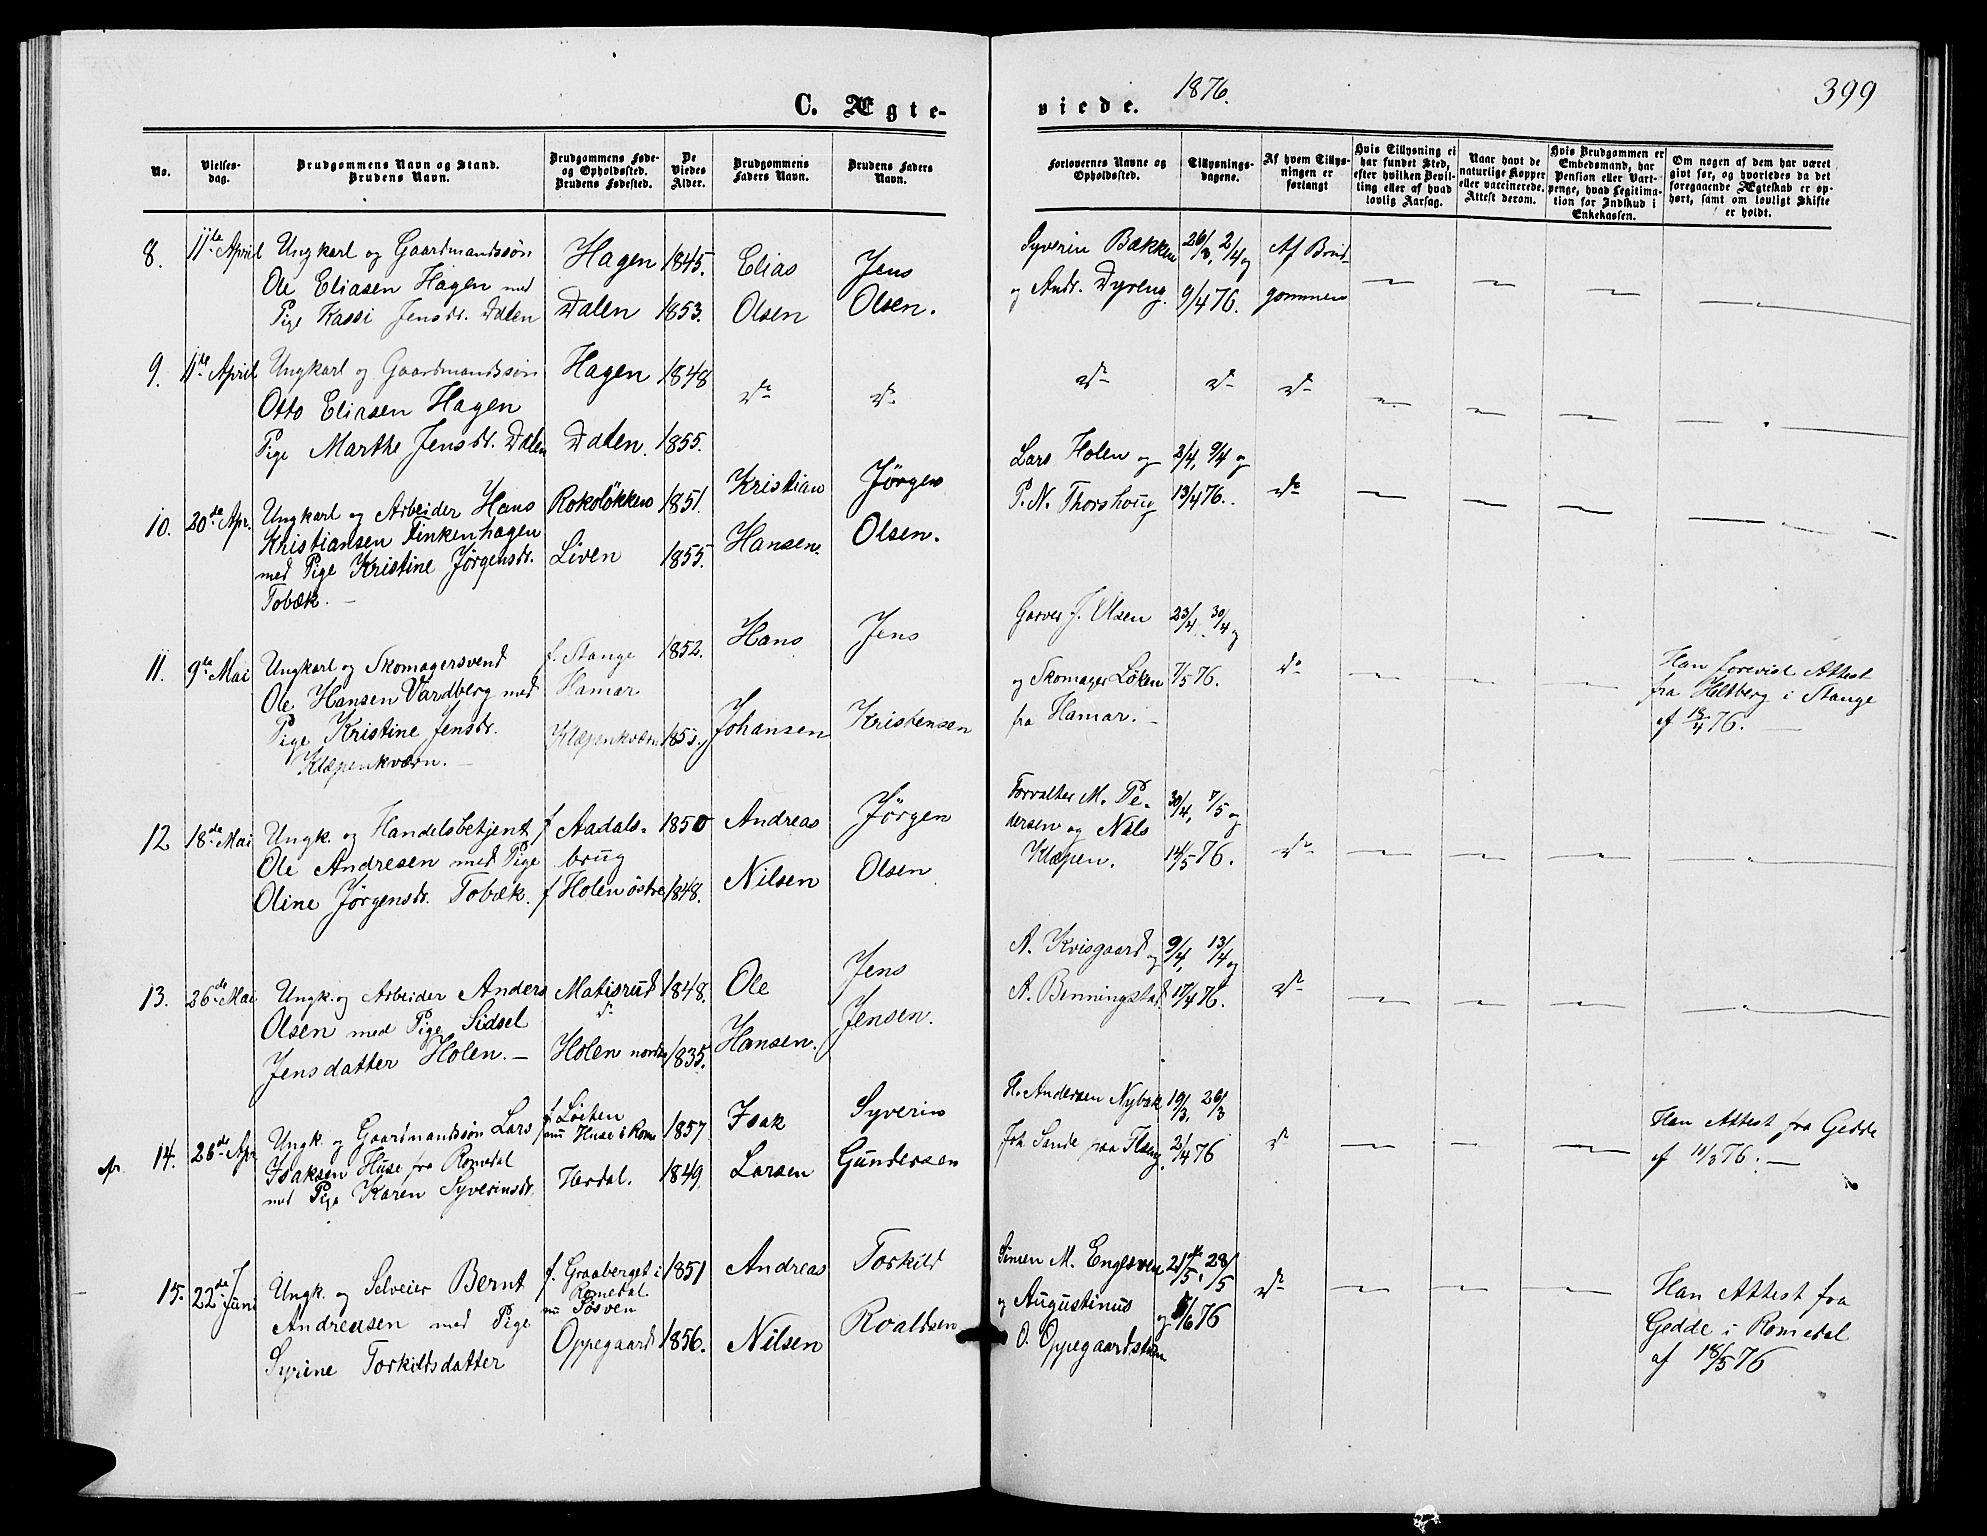 C. Ægte-
viede.
1876.
399
No.
Vielses-
dag.
Brudgommens Navn og Stand.
Brudens Navn.
Brudgommens Føde-
og Opholdssted.
Brudens Fødested.
De
Viedes
Alder.
Brudgommens
Faders Navn.
Brudens Faders
Navn.
Forlovernes Navne og
Opholdssted.
Tillysnings-
dagene.
Af hvem Tillys-
ningen er
forlangt
Hvis Tillysning ei
har fundet Sted,
efter hvilken Bevil-
ling eller af hvad
lovlig Aarsag.
Naar havt de
naturlige Kopper
eller vaccinerede.
Attest derom.
Hvis Brudgommen er
Embedsmand, har
Pension eller Vart-
penge, hvad Legitima-
tion for Indskud i
Enkekassen.
Om nogen af dem har været
givt før, og hvorledes da det
foregaaende Ægteskab er op-
hørt, samt om lovligt Skifte
er holdt.
8.
11te April
Ungkarl og Gaardmandssøn
Ole Eliasen Hagen med
Pige Kassi Jensdr. Dalen
Hagen
Dalen
1845.
1853.
Elias
Olsen
Jens
Olsen.
Syverin Bækken
og Andr. Dyreng.
26/3, 2/4 og
9/4 76.
Af Brud-
gommen
9.
11te April
Ungkarl og Gaardmandssøn
Otto Eliasen Hagen
Pige Marthe Jensdr. Dalen
Hagen
Dalen.
1848
1855.
do
do
do
do
do
10.
20de Apr.
Ungkarl og Arbeider Hans
Kristiansen Finkenhagen
med Pige Kristine Jørgensdr.
Tobæk. —
Rokoløkken
Liven
1851.
1855.
Kristian
Hansen.
Jørgen
Olsen.
Lars Holen og
P. N. Thorshoug
2/4, 9/4 og
13/4 76.
do
11.
9de Mai
Ungkarl og Skomagersvend
Ole Hansen Vardberg med
Pige Kristine Jensdr.
Klæpenkværn. —
f. Stange
Hamar
Klæpenkværn
1852.
1853.
Hans
Johansen
Jens
Kristensen
Garver J. Olsen
og Skomager Løken
fra Hamar. —
23/4, 30/4 og
7/5 76.
do
Han forevist Attest
fra Heltberg i Stange
af 18/4 76. —
12
18de Mai
Ungk. og Handelsbetjent
Ole Andresen med Pige
Oline Jørgensdr. Tobæk.
f Aadals-
brug
f Holen østre
1850
1848.
Andreas
Nilsen
Jørgen
Olsen
Forvalter M. Pe-
dersen og Nils
Klæpen.
30/4, 7/5 og
14/5 76.
do
13.
26de Mai
Ungk. og Arbeider Anders
Olsen med Pige Sidsel
Jensdatter Holen. —
Matisrud
do
Holen nordre
1848.
1835.
Ole
Hansen.
Jens
Jensen.
A. Kvisgaard og
A. Benningstad.
9/4, 13/4 og
17/4 76.
do
Ap.
14.
26de Apr
Ungk. og Gaardmandssøn Lars
Isaksen Huse fra Romedal
med Pige Karen Syverinsdr.
f Løiten
nu Huse i Rom.
Herdal.
1857
1849.
Isak
Larsen
Syverin
Gundersen
H. Andersen Nybak
Joh Sande paa Ilseng
19/3, 26/3
2/4 76
do
Han Attest fra Gedde
af 11/3 76. —
15.
22de Juni
Ungk. og Selveier Bernt
Andreasen med Pige
Syrine Torkildsdatter
f. Graaberget i
Romedal
nu Tosven
Oppegaard
1851
1856.
Andreas
Nilsen
Torkild
Roaldsen
Simen M. Engesveen
og Augustinus
O. Oppegaardstuen
21/5, 28/5
og 5/6 76
do
Han Attest fra
Gedde i Romedal
af 18/5 76